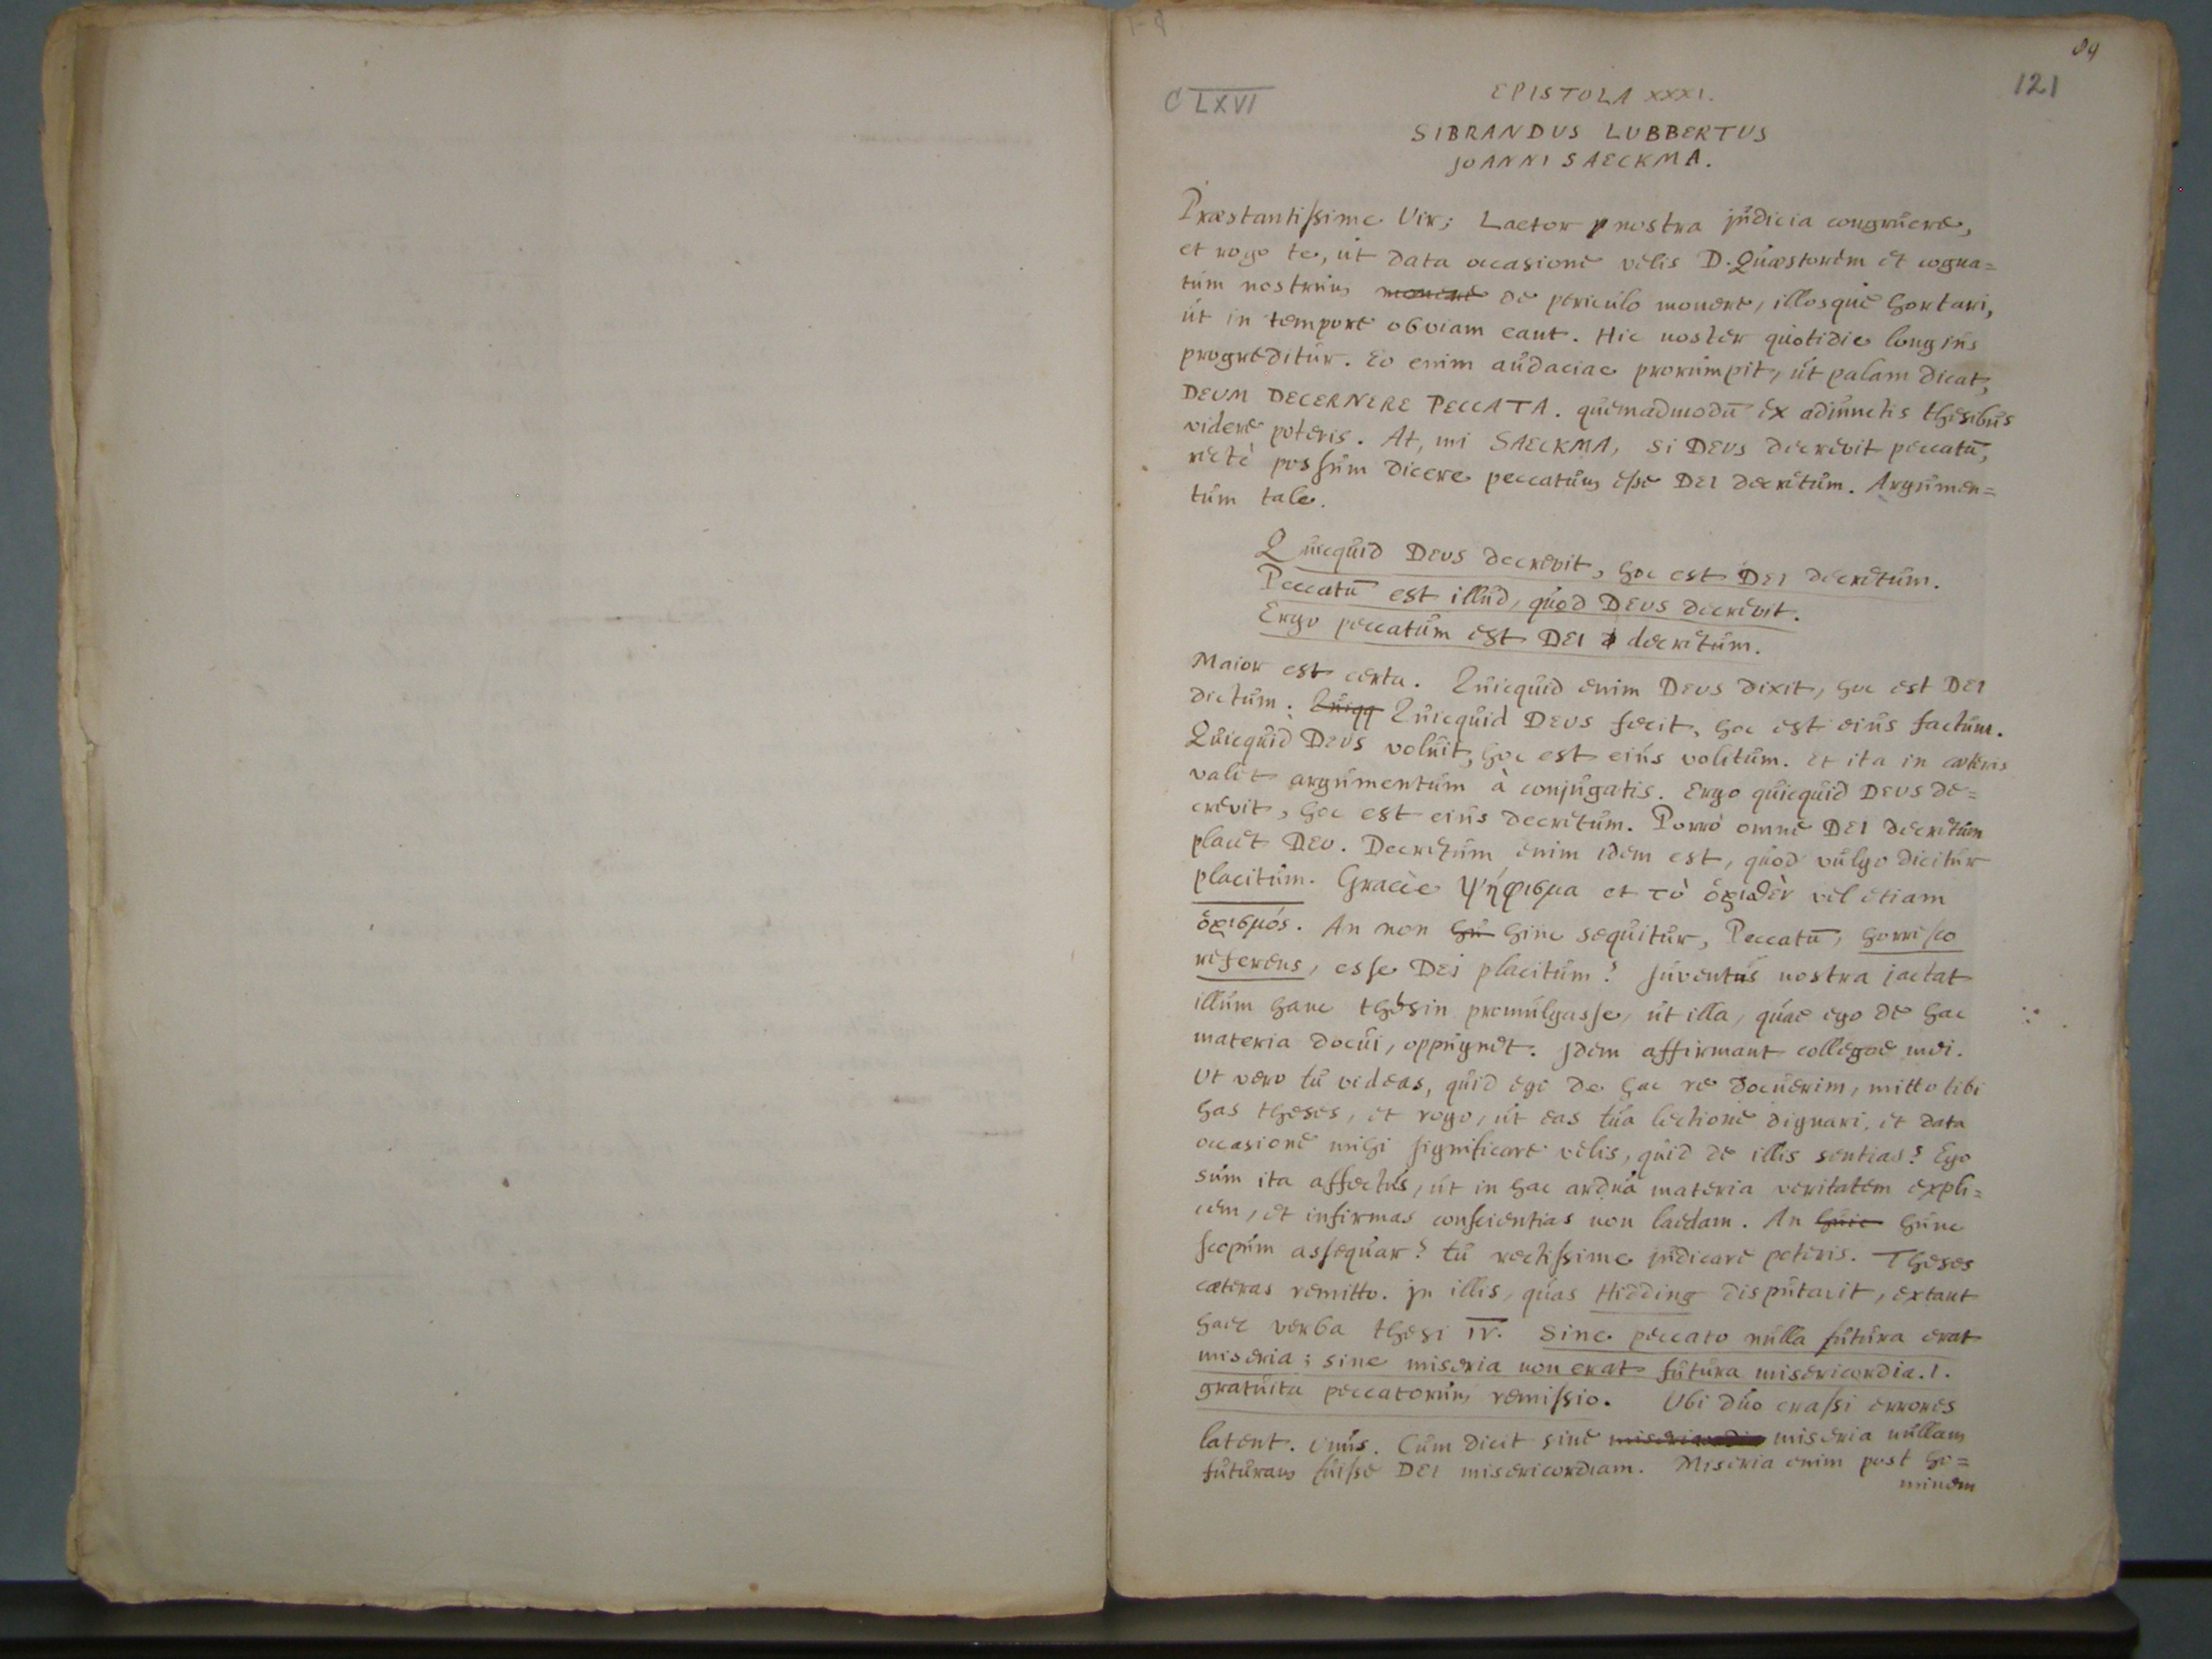 84
121
C LXVI
EPISTOLA XXXI.
SIBRANDUS LUBBERTUS
JOANNI SAECKMA.
Præstantissime Vir; Laetor nostra judicia congruere,
et rogo te, ut data occasione velis D. Quæstorem et cogna=
tum nostrum monere de periculo monere, illosque hortari,
ut in tempore obviam eant. Hic noster quotidie longius
progreditur. Eo enim audaciae prorumpit, ut palam dicat,
DEUM DECERNERE PECCATA. quemadmodū ex adiunctis thesibus
videre poteris. At, mi SAECKMA, si DEUS decrevit peccatū,
rectè possum dicere peccatum esse DEI decretum. Argumen=
tum tale.
Quicquid DEUS decrevit, hoc est DEI decretum.
Peccatū est illud, quod DEUS decrevit.
Ergo peccatum est DEI decretum.
Maior est certa. Quicquid enim DEUS dixit, hoc est DEI
dictum: Quiqq Quicquid DEUS fecit, hoc est eius factum.
Quicquid DEUS voluit, hoc est eius volitum. Et ita in cæteris
valet argumentum à conjugatis. Ergo quicquid DEUS de=
crevit, hoc est eius decretum. Porrò omne DEI decretum
placet DEO. Decretum enim idem est, quod vulgo dicitur
placitum. Graece ψήφισμα et τὸ ὁρισθὲν vel etiam
ὁρισμός. An non hu hinc sequitur, Peccatū, horresco
referens, esse Dei placitum? Juventus nostra jactat
illum hanc thesin promulgasse, ut illa, quae ego de hac
materia docui, oppugnet. Idem affirmant collegae mei.
Ut vero tu videas, quid ego de hac re docuerim, mitto tibi
has theses, et rogo, ut eas tua lectione dignari, et data
occasione mihi significare velis, quid de illis sentias? Ego
sum ita affectus, ut in hac ardua materia veritatem expli=
cem, et infirmas conscientias non laedam. An huic hunc
scopum assequar? tu rectissime judicare poteris. Theses
cæteras remitto. In illis, quas Hidding disputavit, extant
haec verba thesi IV. Sine peccato nulla futura erat
miseria; sine miseria non erat futura misericordia. 1.
gratuita peccatorum remissio. Ubi duo crassi errores
latent. Unus. Cum dicit sine misericordia miseria nullam
futuram fuisse DEI misericordiam. Miseria enim post ho=
minem